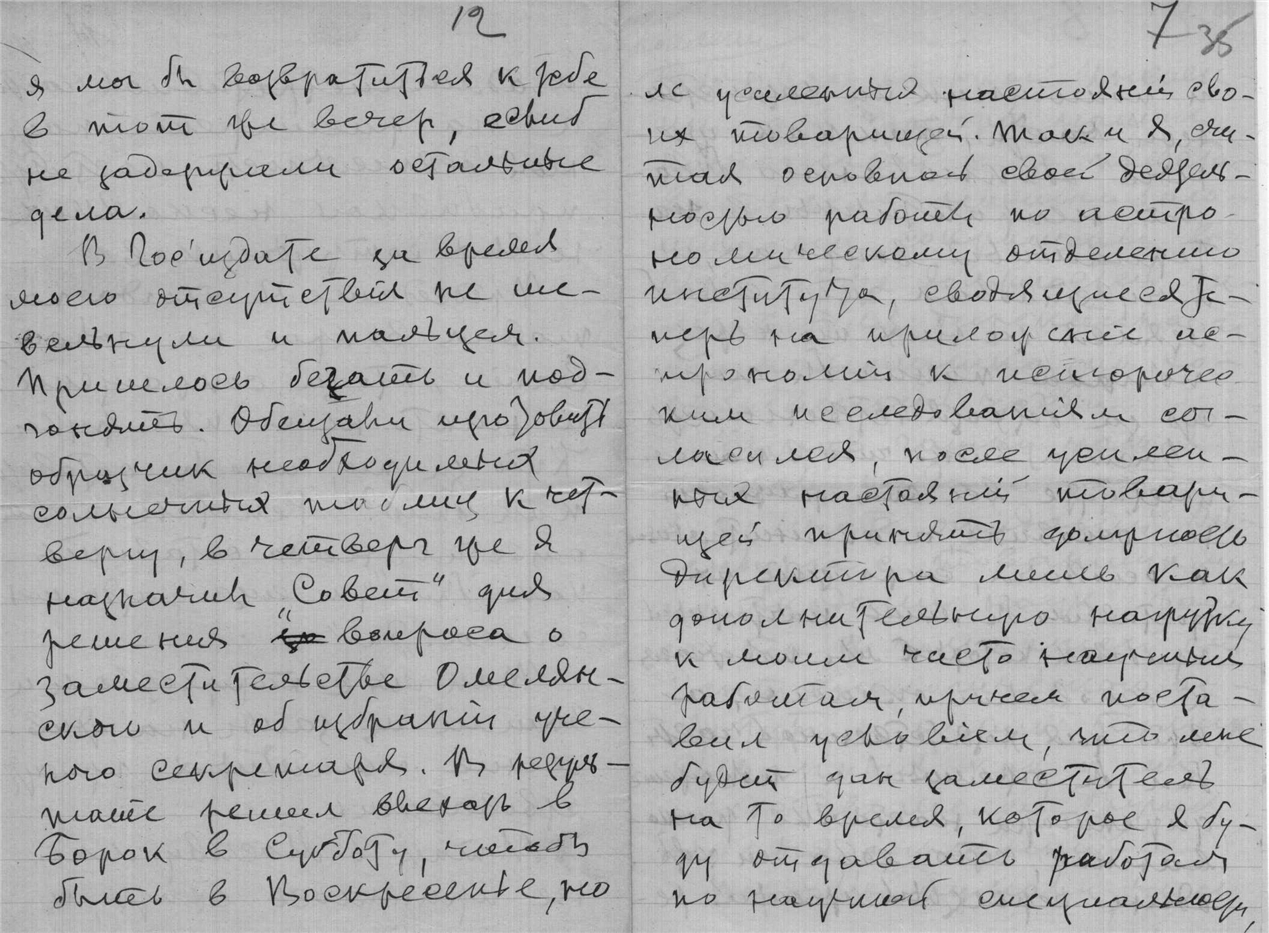 12
я мог бы возвратиться к тебе
в тот же вечер, еслиб
не задержали остальные
дела.
В Гос'издате за время
моего отсутствия не ше-
вельнули и пальцем.
Пришлось бегать и под-
гонять. Обещали изготовить
образчик необходимых
солнечных таблиц к чет-
вергу, в четверг же я
назначил "Совет" для
решения вопроса о
заместительстве Омелян-
ского и об избрании уче-
ного секретаря. В резуль-
тате решил выехать в
Борок в Субботу, чтобы
быть в Воскресенье, но
7 35
ле усиленных настояний сво-
их товарищей. Так и я, счи-
тая основной своей деятель-
ностью работы по астро-
номическому отделению
института, сводящиеся те-
перь на приложение ас-
трономии к историчес
ким исследованиям сог-
ласился, после усилен-
ных настояний товари-
щей принять должность
директора лишь как
дополнительную нагрузку
к моим чисто научным
работам, причем поста-
вил условием, что мне
будет дан заместитель
на то время, которое я бу-
ду отдавать работам
по научной специальности,